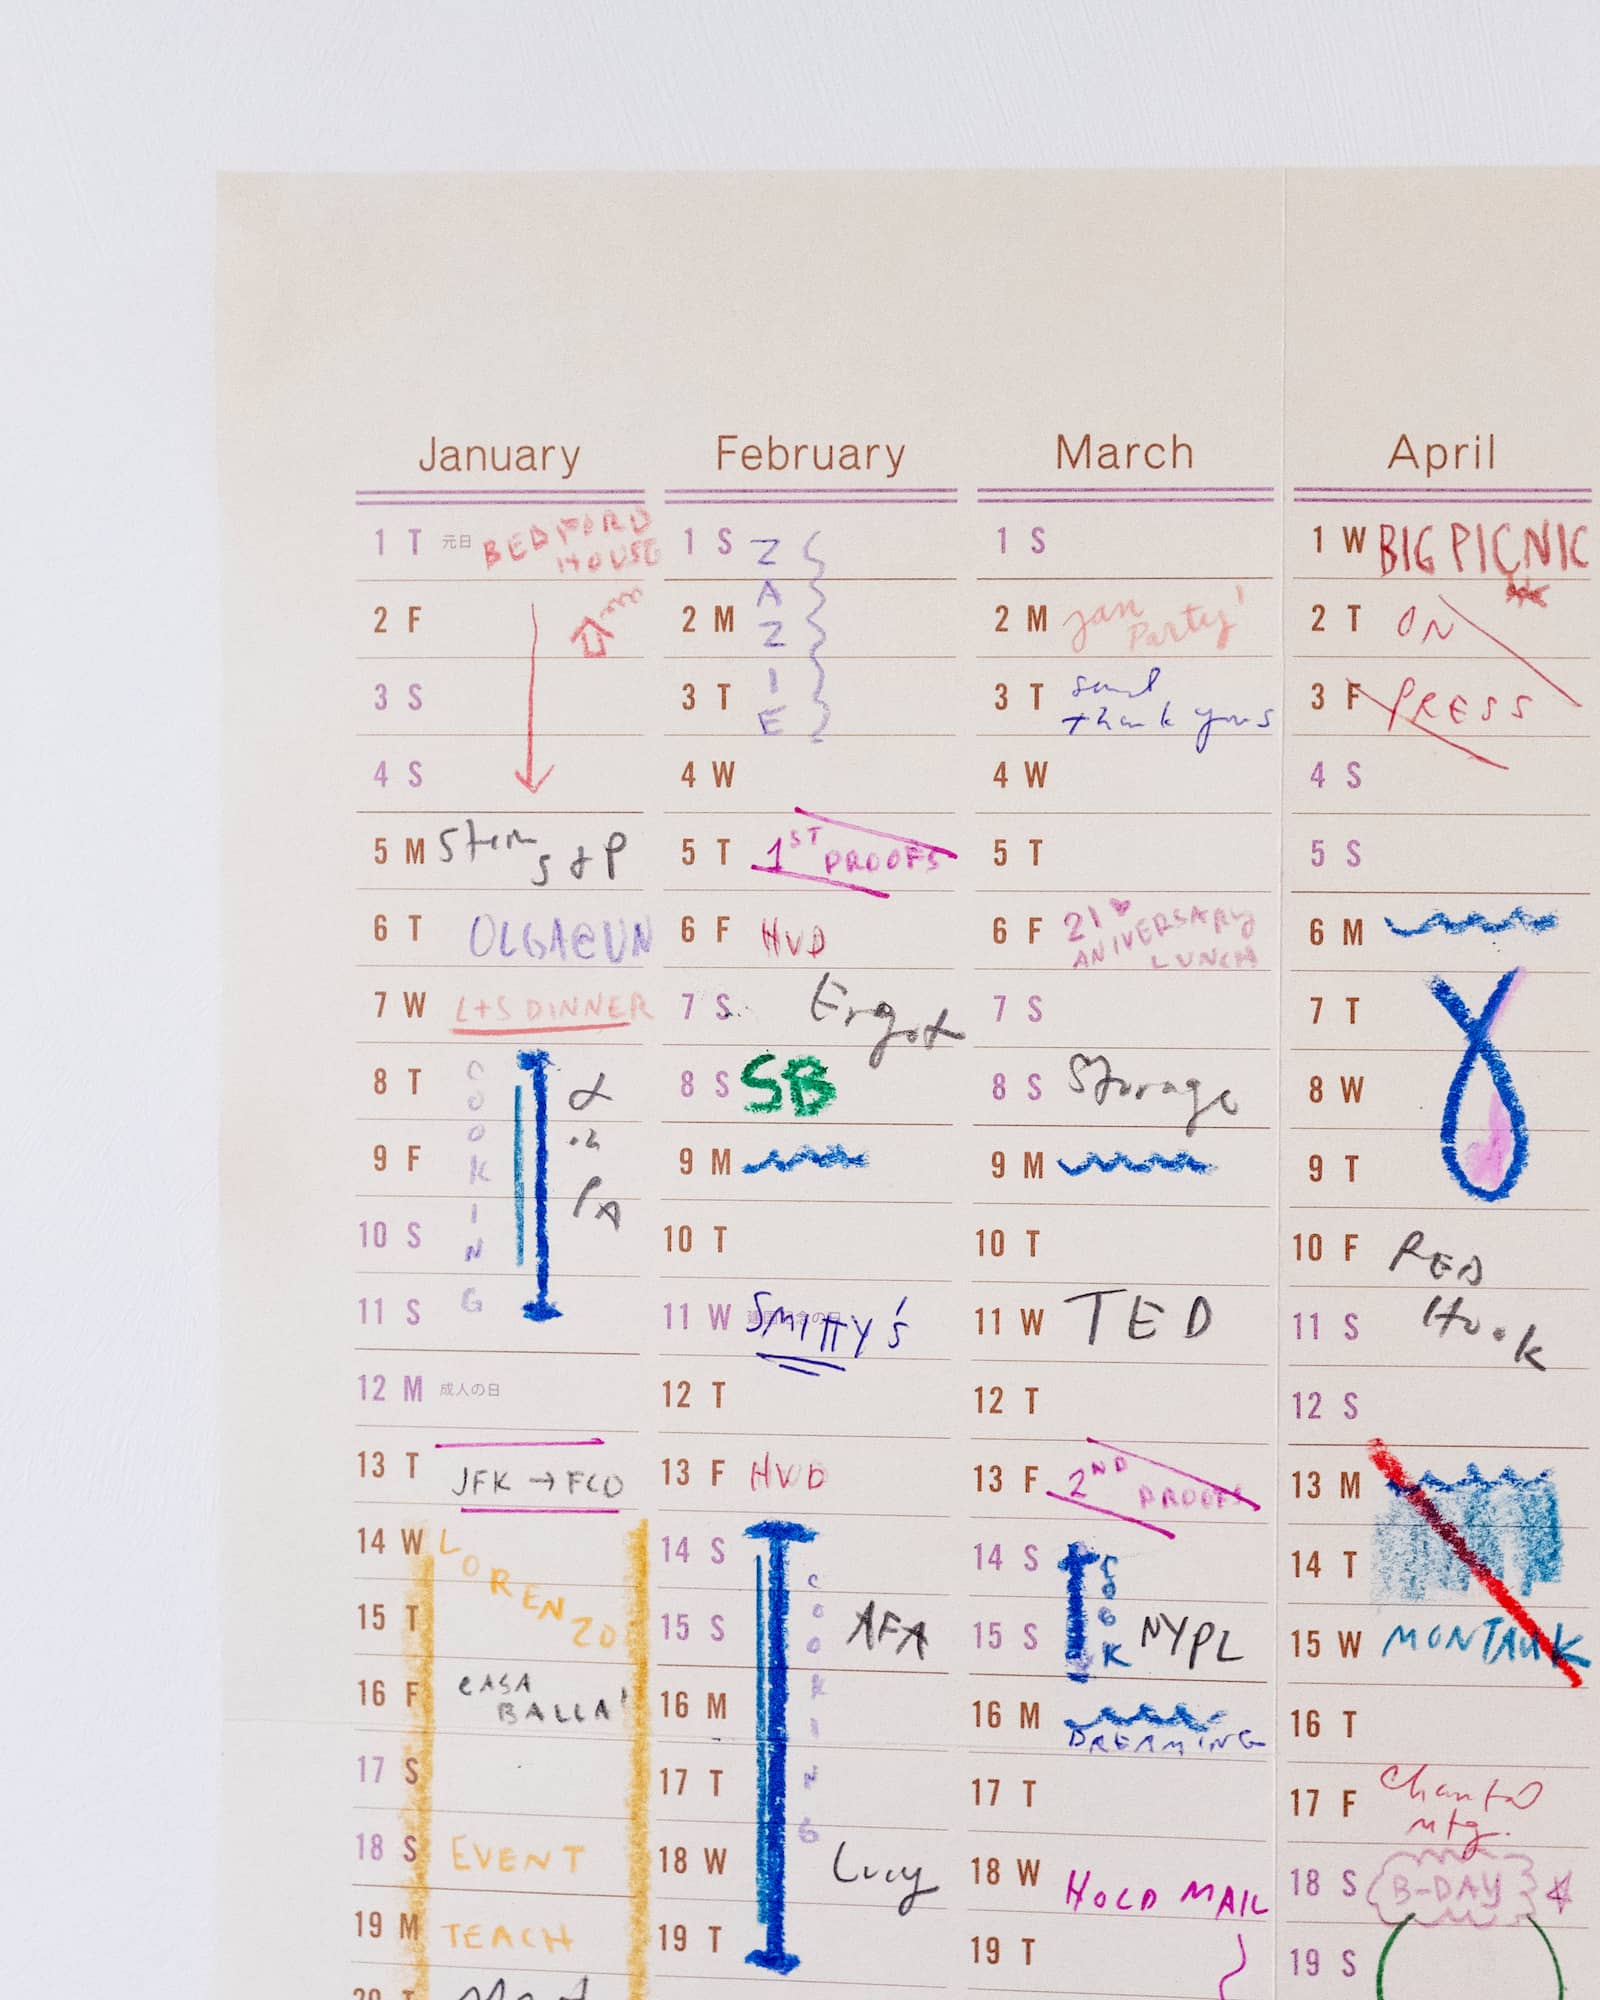 January
1 T 元日 BEDFORD
HOUSE
2 F
3 S
4 S
5 M
6 T OLGA@UN
7 W L+S DINNER
8 T
9 F
10 S
11 S
COOKING
12 M 成人の日
13 T JFK → FCO
14 W LORENZO
15 T
16 F CASA
BALLA!
17 S
18 S EVENT
19 M TEACH
February
1 S ZAZIE
2 M
3 T
4 W
5 T 1ST PROOFS
6 F HVD
7 S Ergot
8 S SB
9 M
10 T
11 W SMITTY'S
12 T
13 F HVD
14 S COOKING
15 S AFA
16 M
17 T
18 W Lucy
19 T
March
1 S
2 M Jan
Party!
3 T send
thank yous
4 W
5 T
6 F 21
ANIVERSARY
LUNCH
7 S
8 S Storage
9 M
10 T
11 W TED
12 T
13 F 2ND PROOFS
14 S
15 S NYPL
16 M DREAMING
17 T
18 W HOLD MAIL
19 T
April
1 W BIG PICNIC
2 T ON
3 F PRESS
4 S
5 S
6 M
7 T
8 W
9 T
10 F RED
11 S Hook
12 S
13 M
14 T
15 W MONTAUK
16 T
17 F Chantal
mtg.
18 S B-DAY
19 S